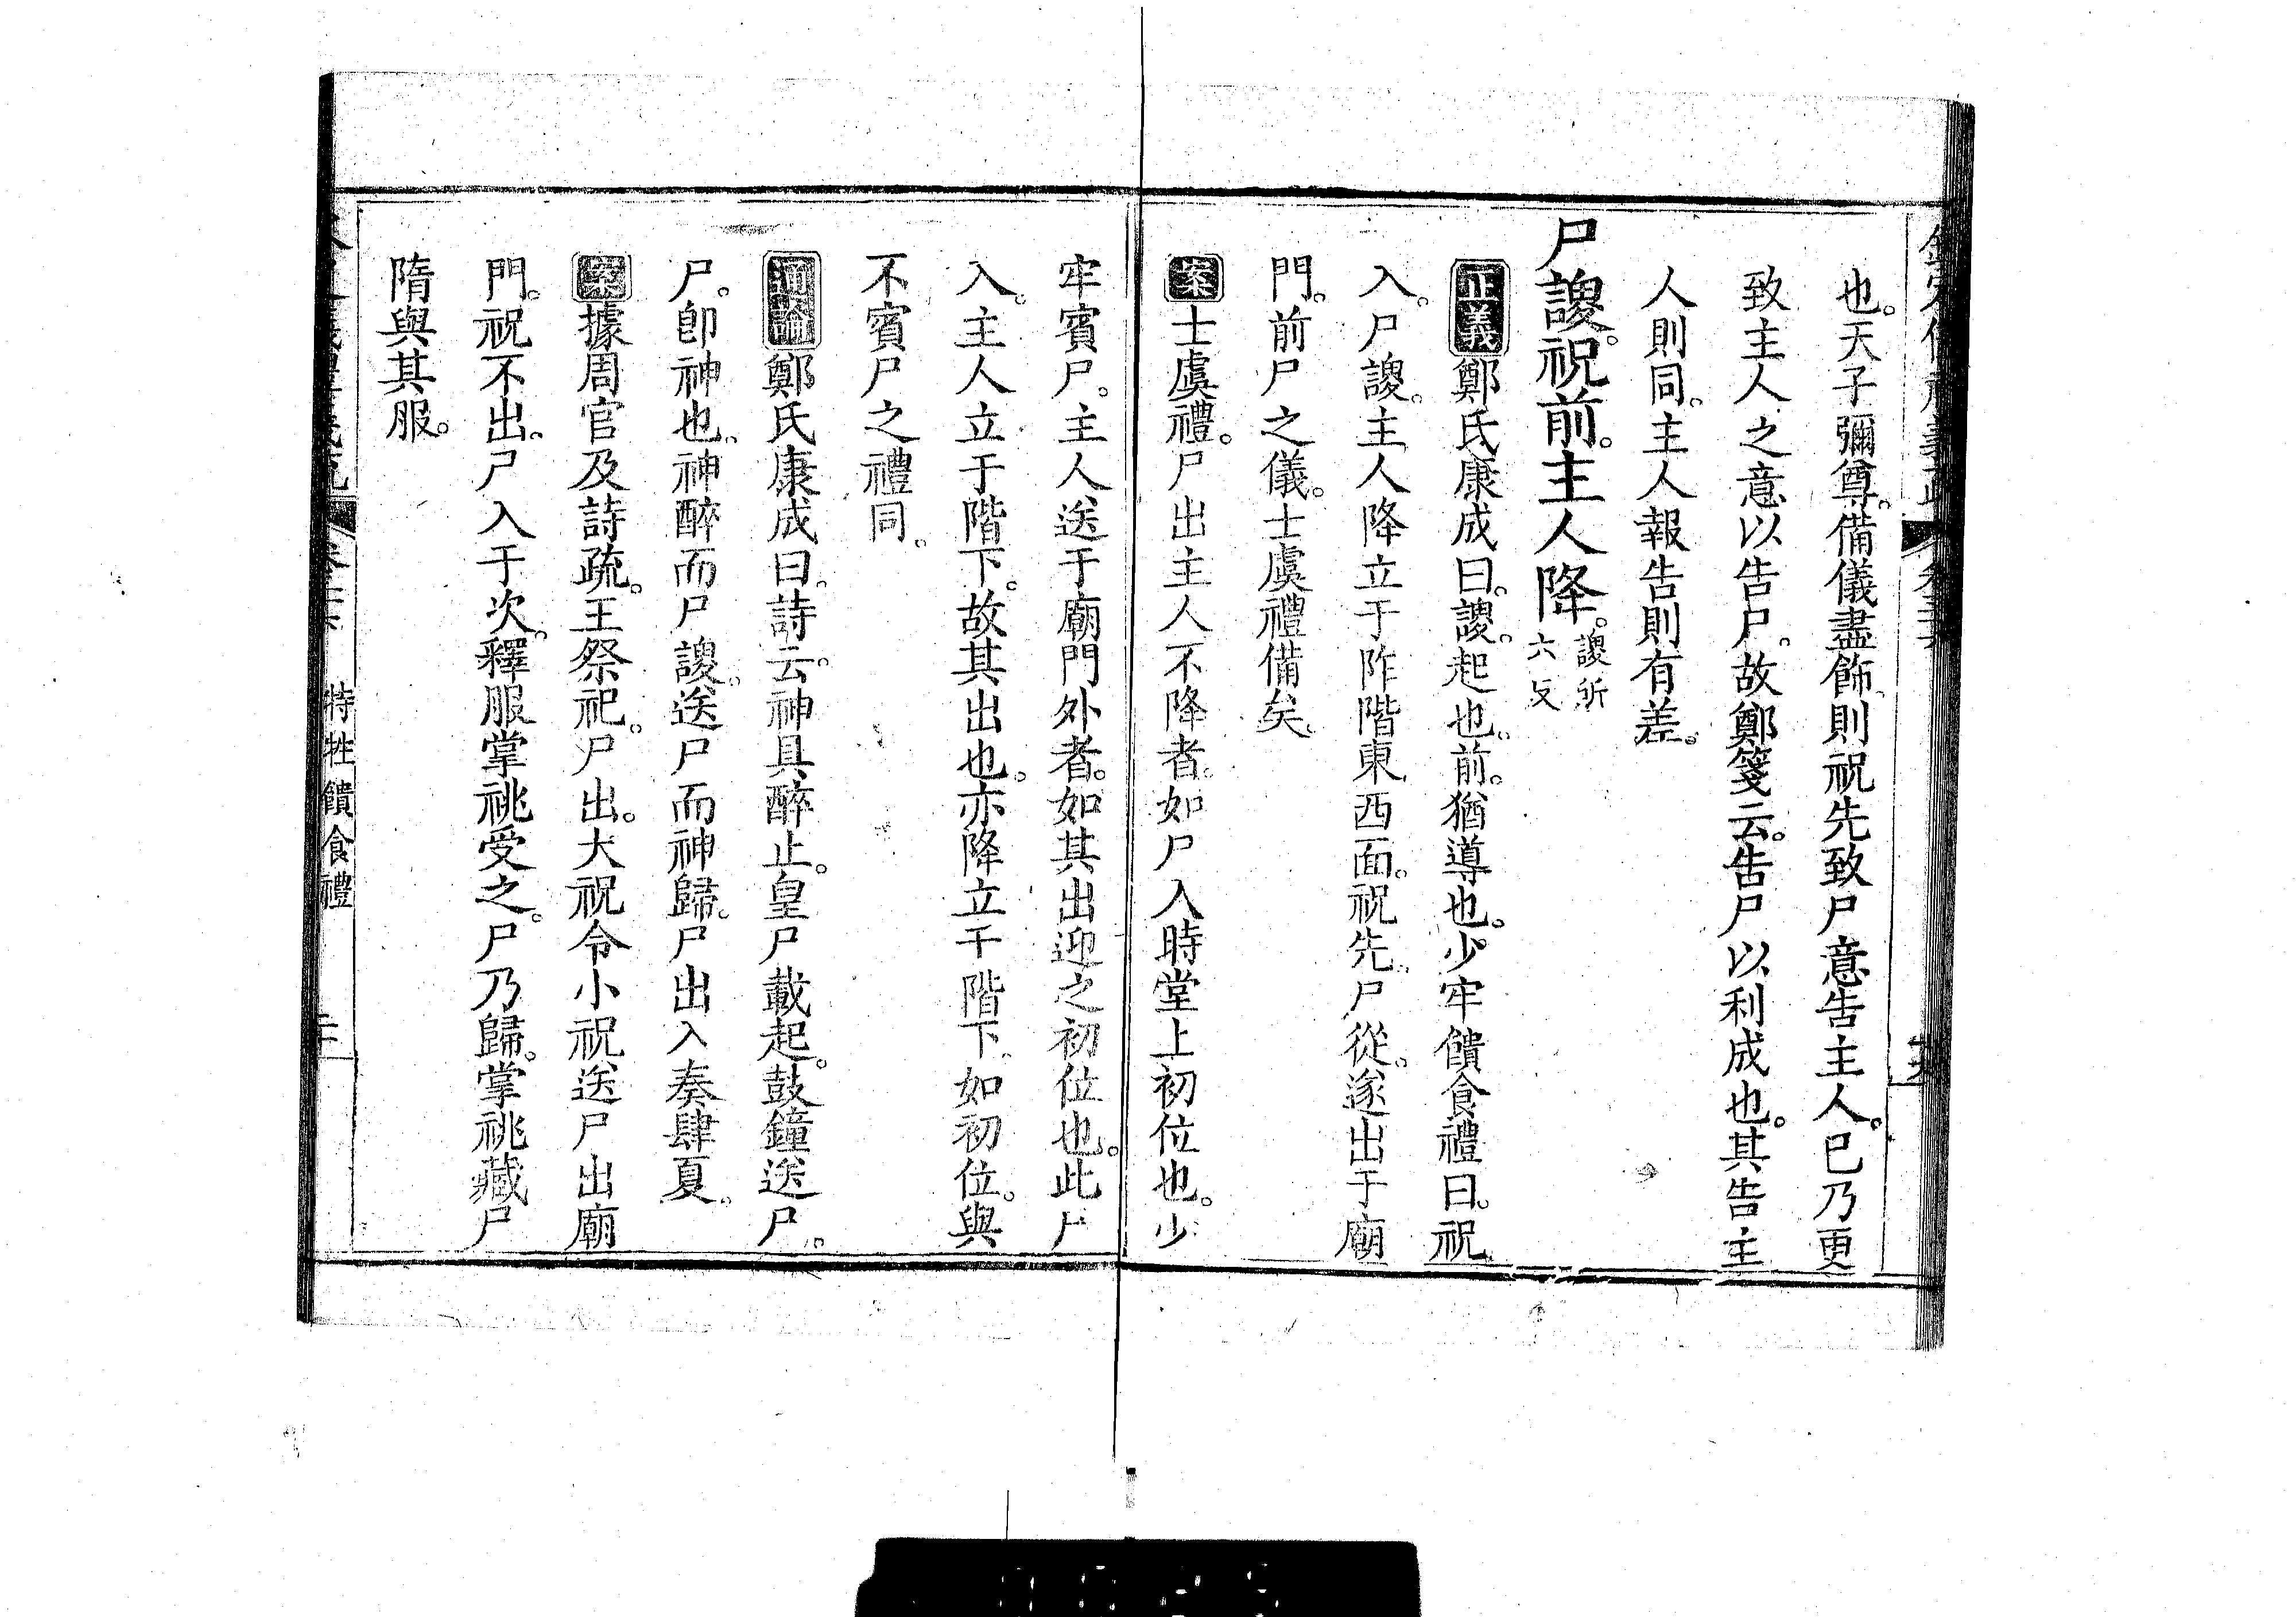 也。天子彌尊。備儀盡飾。則祝先致尸意告主人。已乃更
致主人之意以告尸。故鄭箋云。告尸以利成也。其告主
人則同。主人報告則有差。
尸謖。祝前。主人降。謖所六反
正義鄭氏康成曰。謖。起也。前。猶導也。少牢饋食禮曰。祝
入。尸謖。主人降立于阼階東。西面。祝先。尸從。遂出于廟
門。前尸之儀。士虞禮備矣。
案士虞禮。尸出主人不降者。如尸入時堂上初位也。少
牢賓尸。主人送于廟門外者。如其出迎之初位也。此尸
入。主人立于階下。故其出也。亦降立于階下。如初位。與
不賓尸之禮同。
通論鄭氏康成曰。詩云。神具醉止。皇尸載起。鼓鐘送尸。
尸。卽神也。神醉而尸謖。送尸而神歸。尸出入奏肆夏。
案據周官及詩疏。王祭祀。尸出。大祝令小祝送尸出廟
門。祝不出。尸入于次。釋服掌祧受之。尸乃歸。掌祧藏尸
隋與其服。
特牲饋食禮